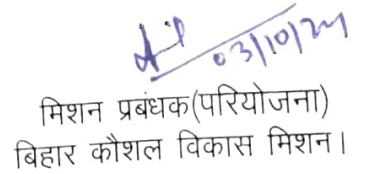 03/10/24
मिशन प्रबंधक(परियोजना)
बिहार कौशल विकास मिशन।